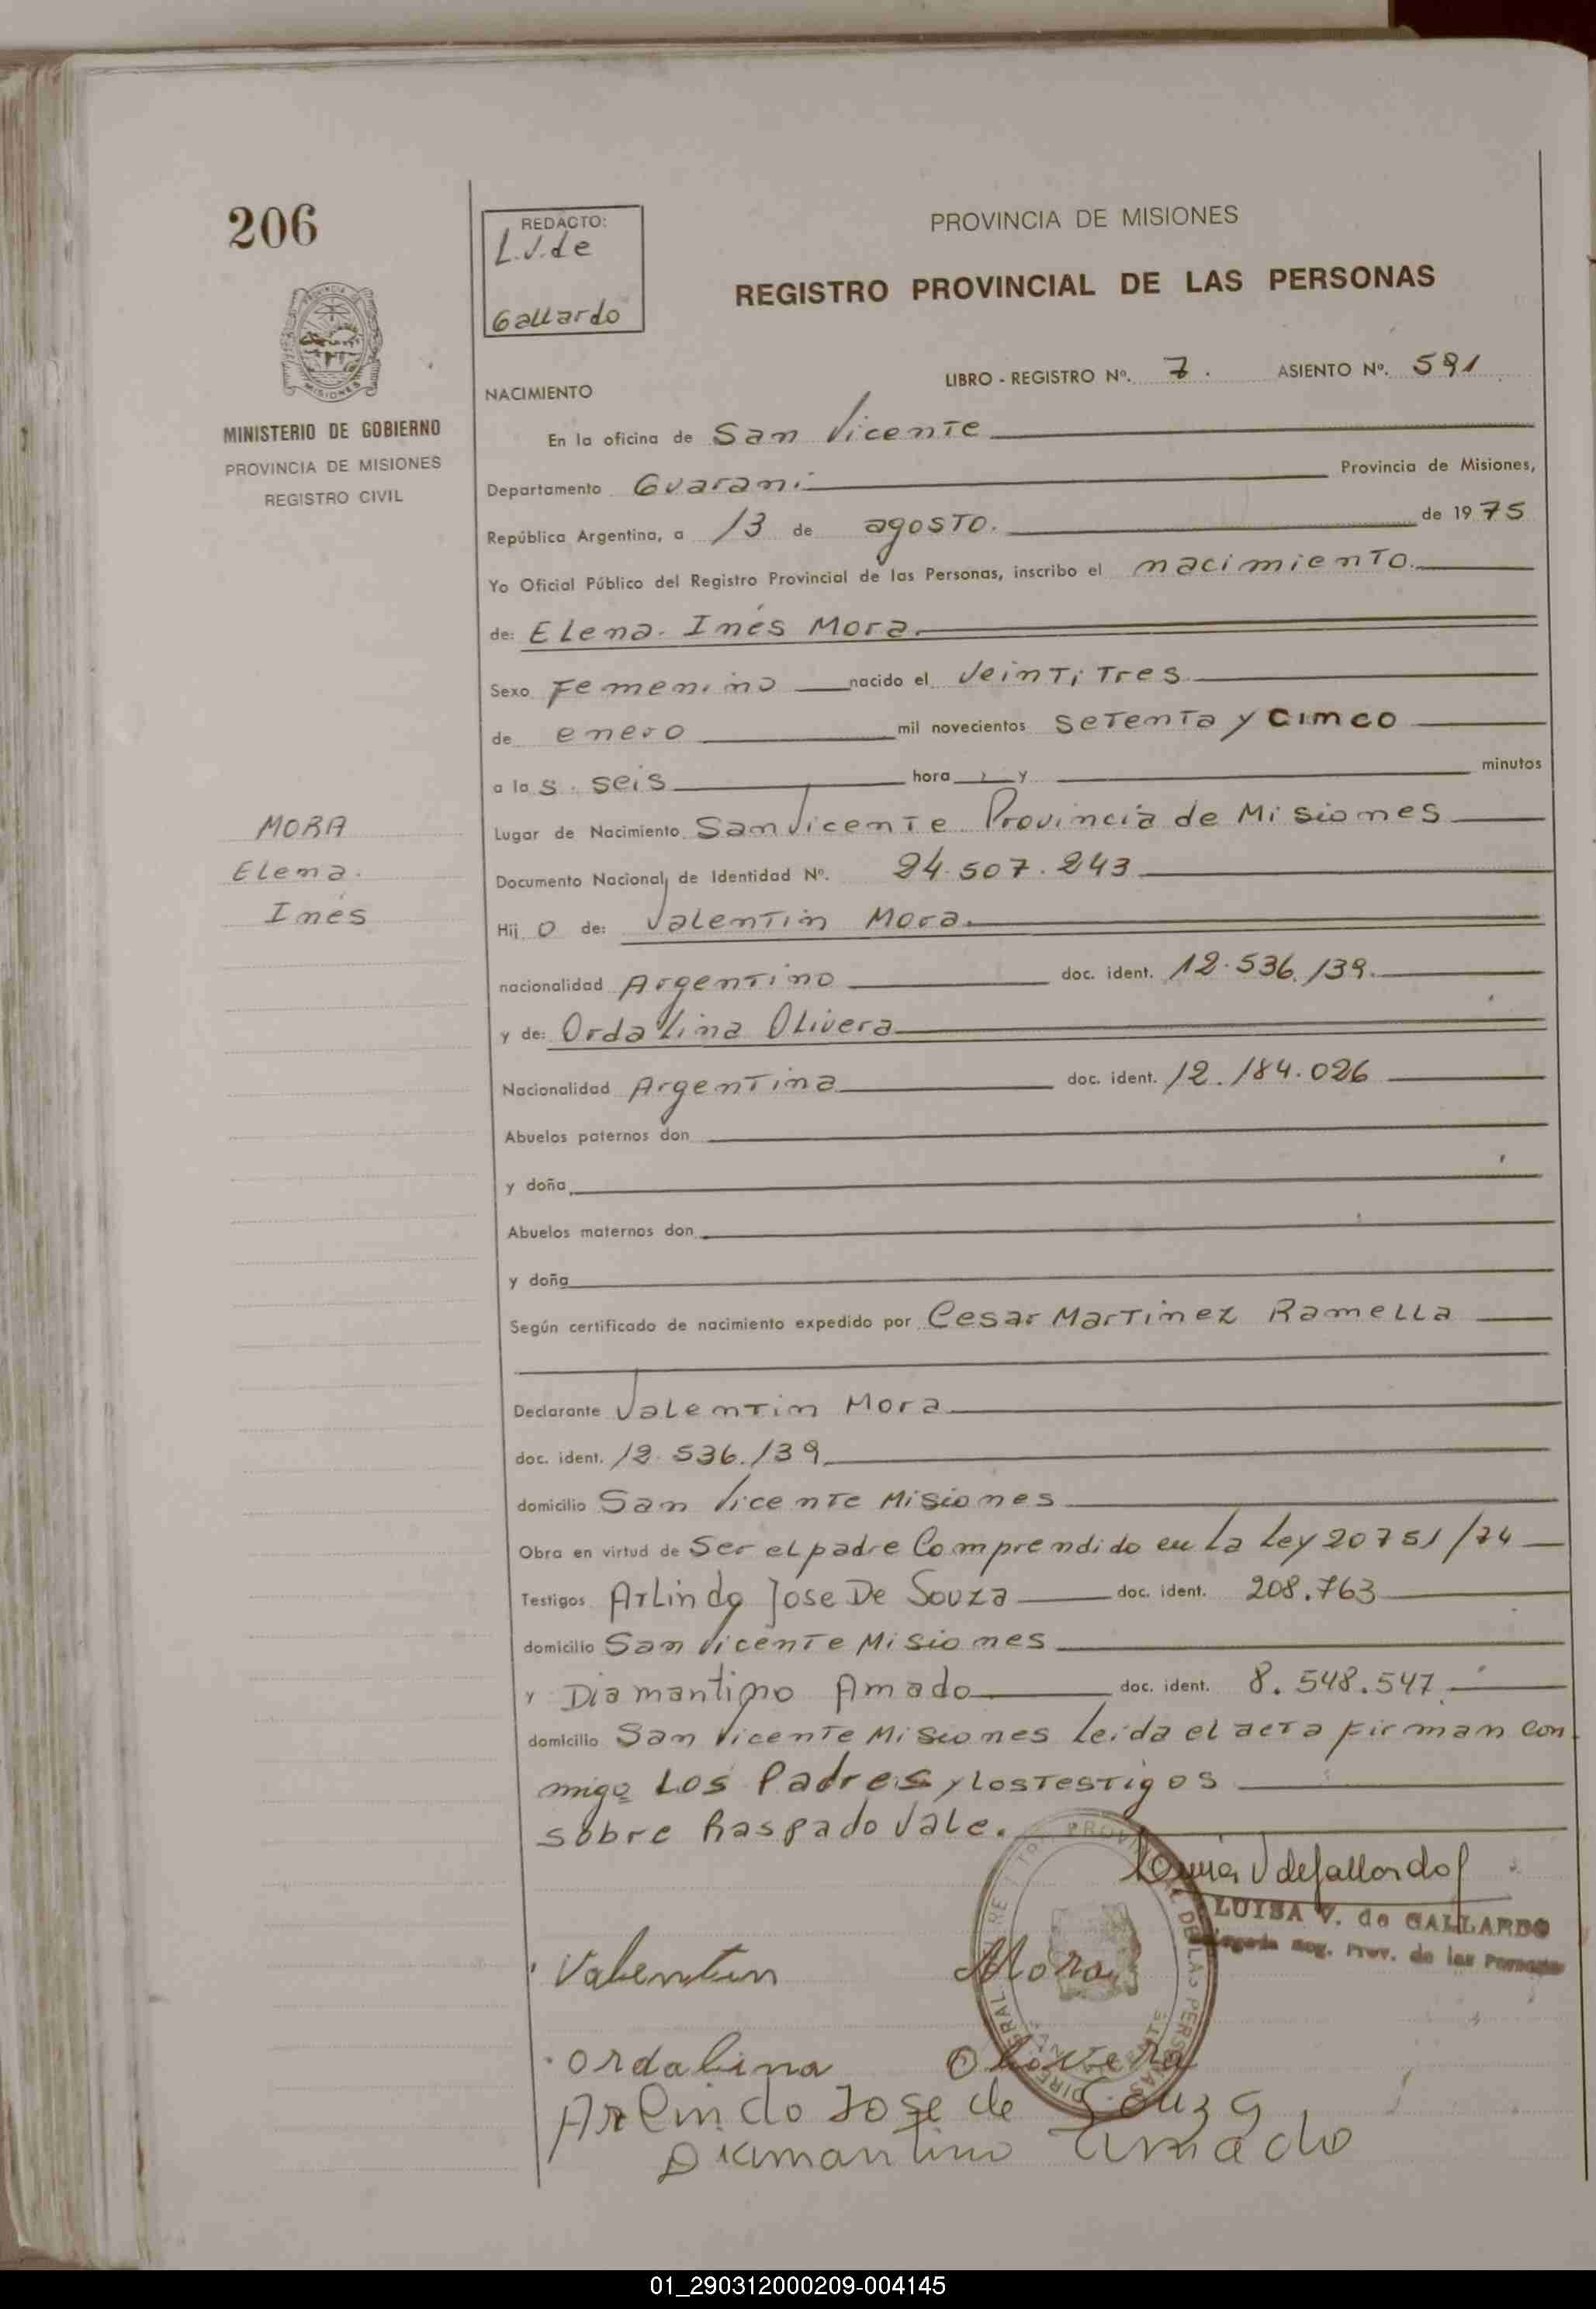 206
REDACTO:
L.V.de
Gallardo
PROVINCIA DE MISIONES
REGISTRO PROVINCIAL DE LAS PERSONAS
MINISTERIO DE GOBIERNO
PROVINCIA DE MISIONES
REGISTRO CIVIL
LIBRO - REGISTRO Nº. 7. ASIENTO Nº. 591
NACIMIENTO
En la oficina de San Vicente
Departamento Guarani Provincia de Misiones,
República Argentina, a 13 de agosto. de 1975
Yo Oficial Público del Registro Provincial de las Personas, inscribo el nacimiento.
de: Elena. Inés Mora.
Sexo Femenino nacido el Veintitres
de enero mil novecientos setenta y cinco
a las. seis hora y minutos
MORA
Elena.
Inés
Lugar de Nacimiento San Vicente Provincia de Misiones
Documento Nacional de Identidad Nº. 24.507.243
Hijo de: Valentin Mora.
nacionalidad Argentino doc. ident. 12.536.139.
y de: Ordalina Olivera
Nacionalidad Argentina doc. ident. 12.184.026
Abuelos paternos don
y doña
Abuelos maternos don
y doña
Según certificado de nacimiento expedido por Cesar Martinez Ramella
Declarante Valentin Mora
doc. ident. 12.536.139
domicilio San Vicente Misiones
Obra en virtud de Ser el padre Comprendido en La Ley 20751/74
Testigos Arlindo Jose De Souza doc. ident. 208.763
domicilio San Vicente Misiones
y Diamantino Amado doc. ident. 8.548.547
domicilio San Vicente Misiones Leida el acta firman con
migo Los Padres y los Testigos
sobre Raspado Vale.
LUISA V. de GALLARDO
Reg. Prov. de las Personas
Valentin Mora
Ordalina Olivera
Arlindo Jose de Souza
Diamantino Amado
01_290312000209-004145